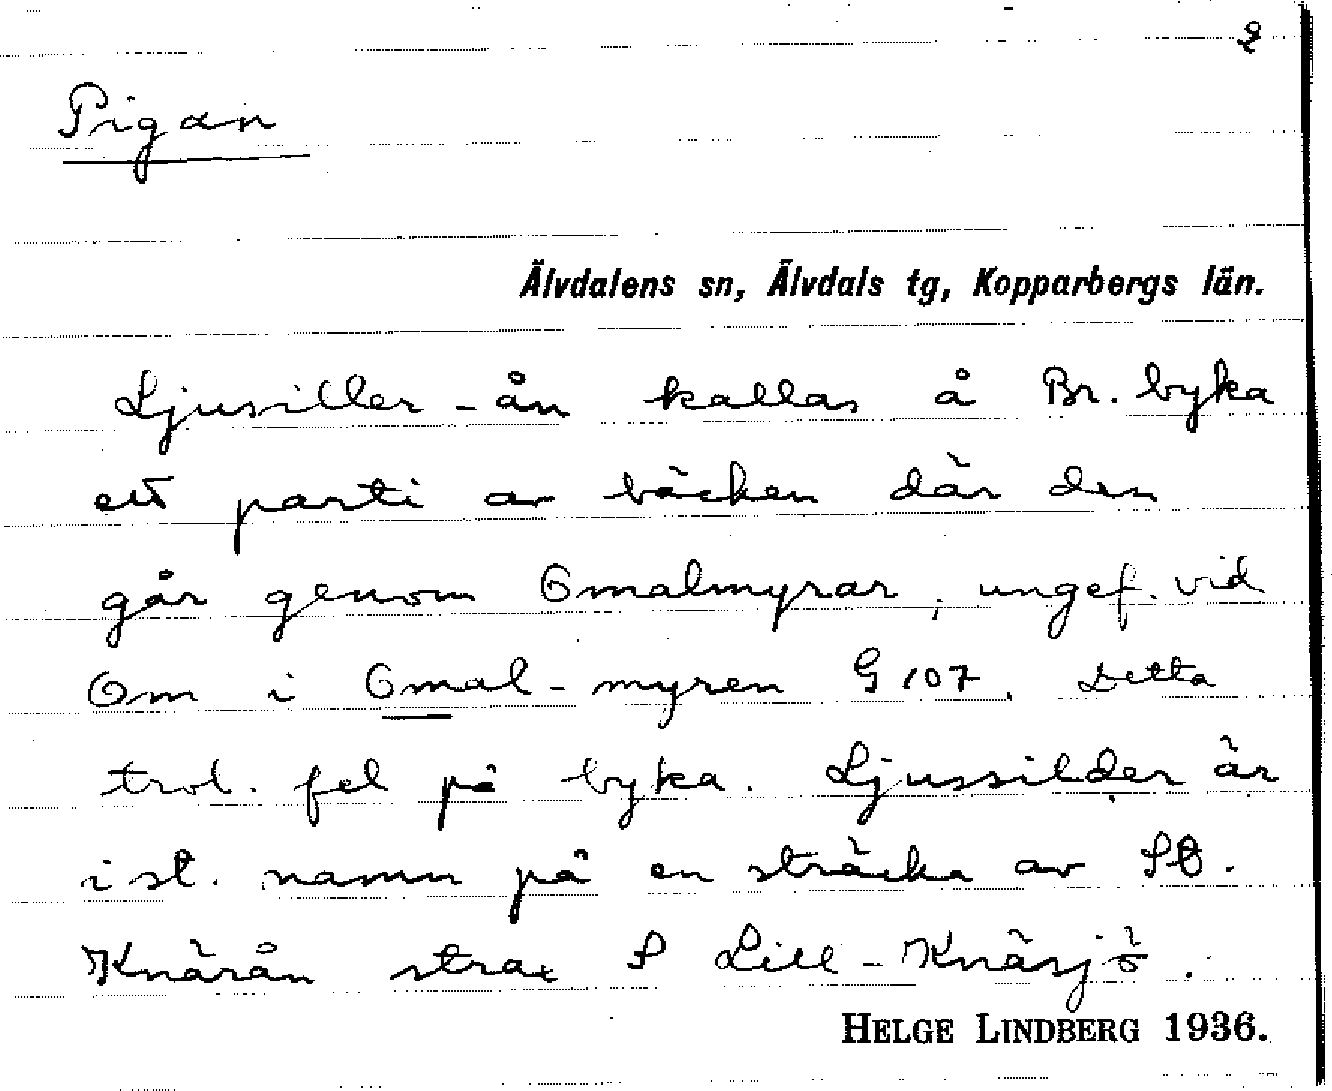 2
Pigan
Älvdalens sn, Älvdals tg, Kopparbergs län.
Ljusiller-ån kallas å Br. byka
ett parti av bäcken där den
går genom Gmalmyrar, ungef. vid
Om i Gmal-myren G 107. Detta
trol. fel på byka. Ljussilder är
i st. namn på en sträcka av St.
Knärån strax S Lill-Knäsjö.
HELGE LINDBERG 1936.